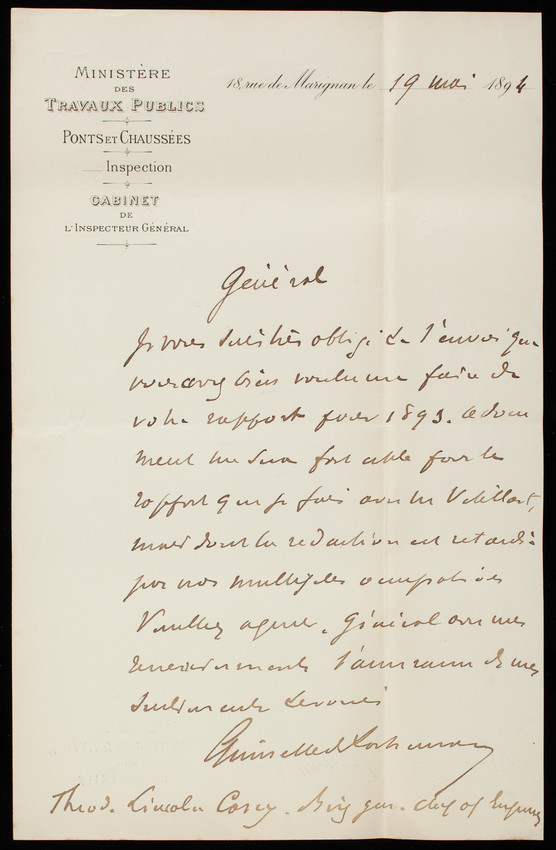 MINISTÈRE
DES
TRAVAUX PUBLICS
PONTS ET CHAUSSÉES
Inspection
CABINET
DE
L'INSPECTEUR GÉNÉRAL
18, rue de Marignan le 19 mai 1894
Général
Je vous suis très obligé de l'envoi que
vous avez bien voulu me faire de
votre rapport pour 1893. Ce docu
ment me sera fort utile pour le
rapport que je fais avec Mr Vétillart,
mais dont la rédaction est retardée
par nos multiples occupations
Veuillez agréer, Général avec mes
remerciements l'assurance de mes
sentiments dévoués
Theod. Lincoln Casey. Brig gen. chef of Engineers